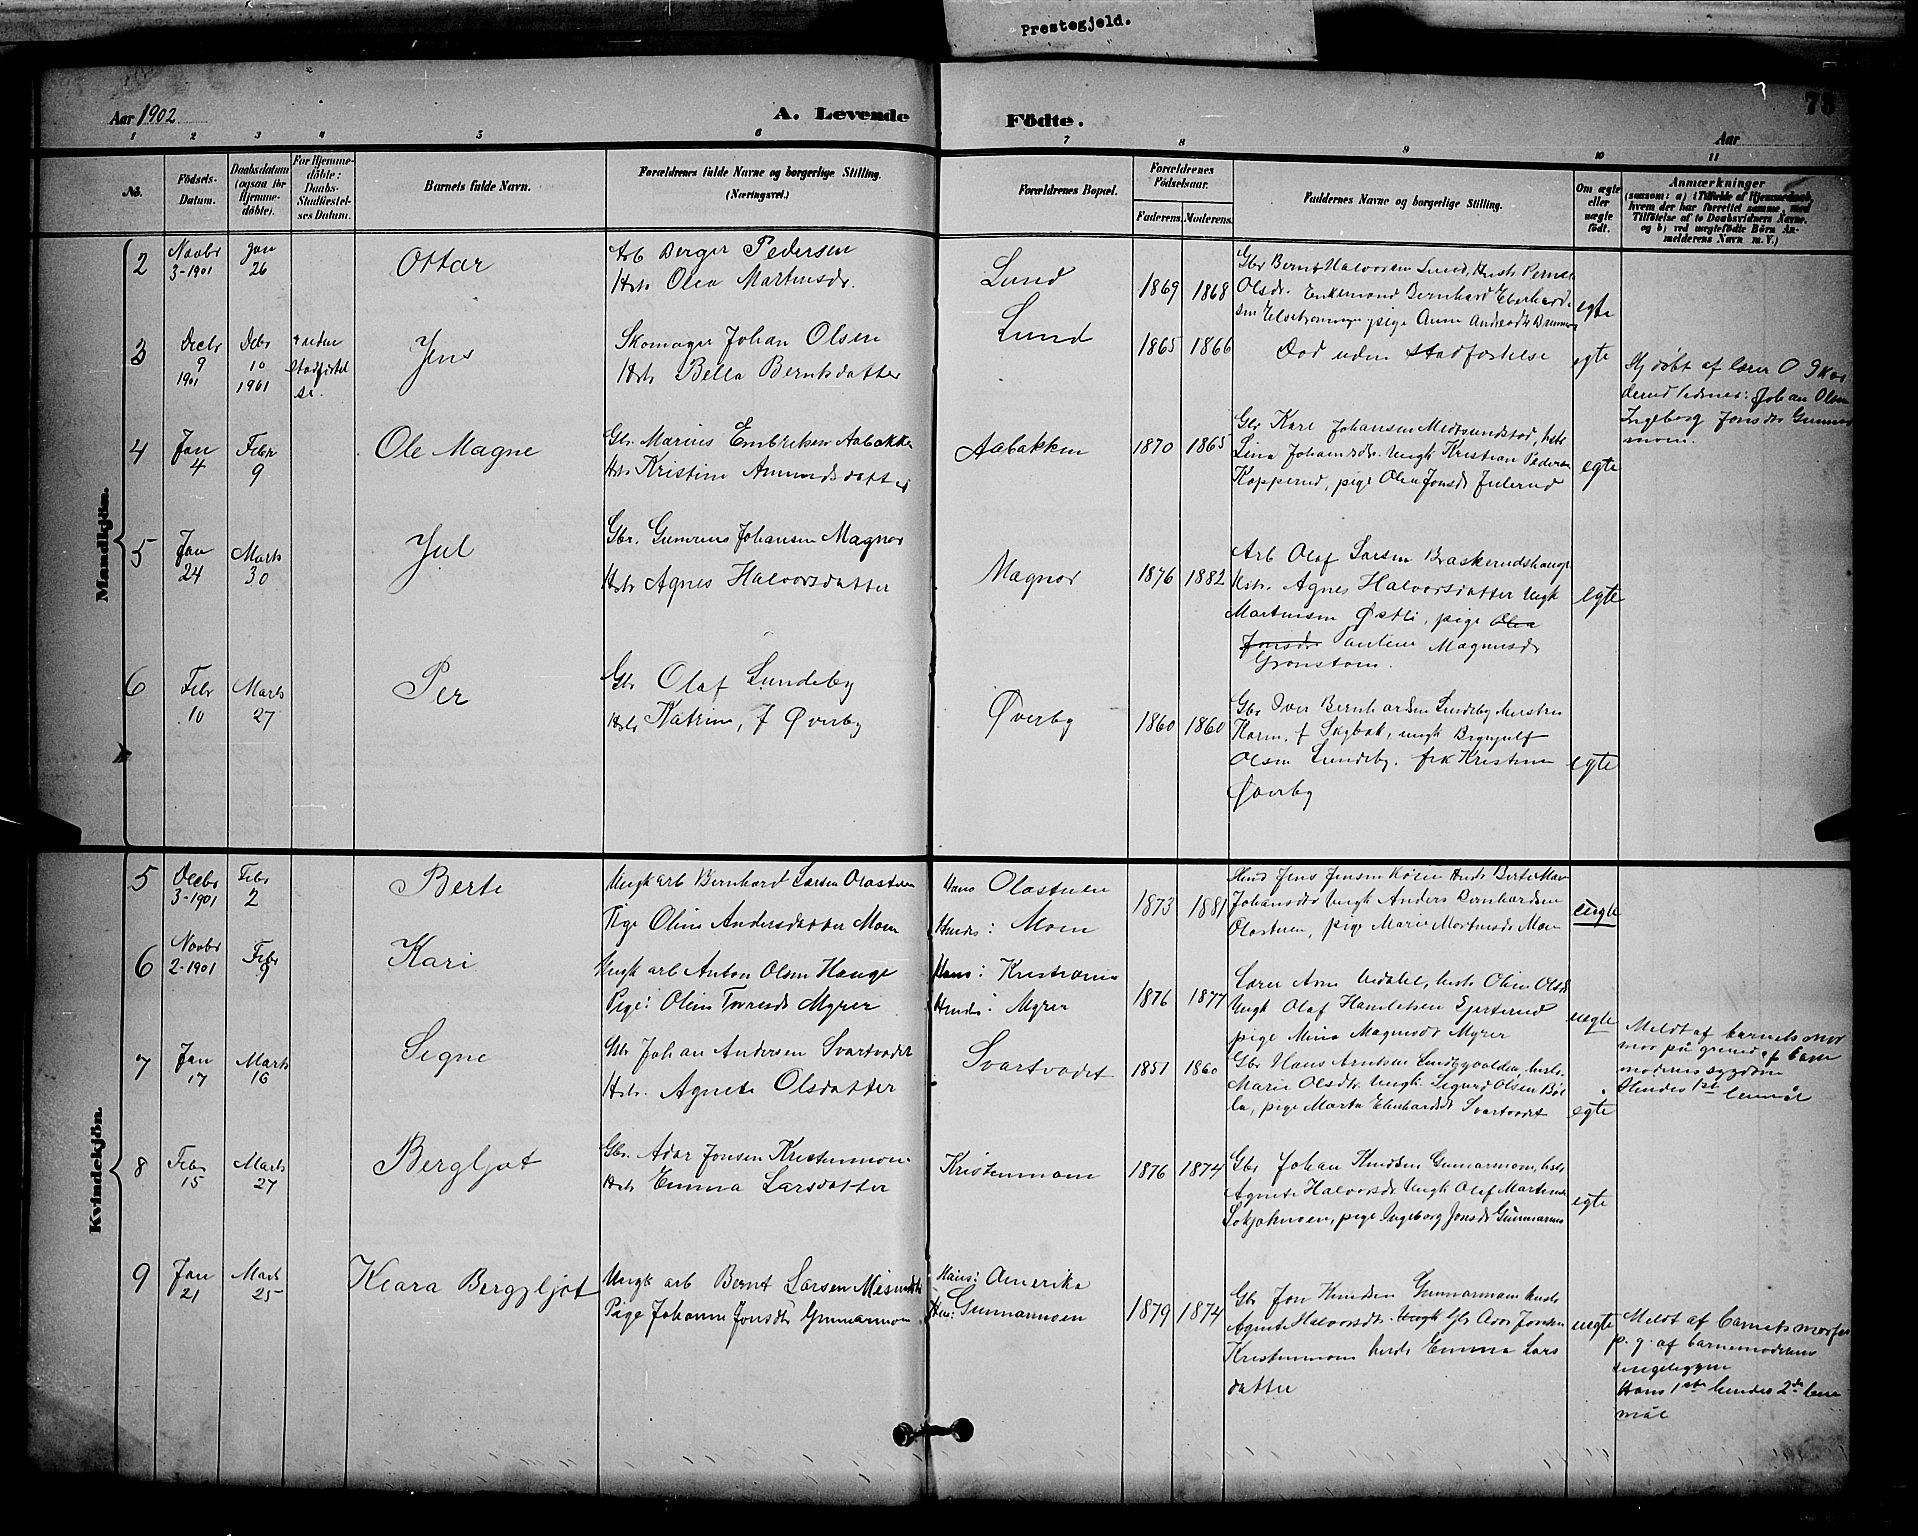 Prestegjeld.
73
Aar 1902
A. Levende
Födte.
Aar
1 2 3 4 5 6 7 8 9 10 11
No.
Födsels-
Datum.
Daabsdatum
(ogsaa for
Hjemme-
döbte).
For Hjemme-
döbte:
Daabs-
Stadfæstel-
ses Datum.
Barnets fulde Navn.
Forældrenes fulde Navne og borgerlige Stilling.
(Næringsvei.)
Forældrenes Bopæl.
Forældrenes
Födselsaar.
Faderens. Moderens.
Faddernes Navne og borgerlige Stilling.
Om ægte
eller
uægte
født.
Anmærkninger
(saasom: a) i Tilfælde af Hjemmedaab,
hvem der har forrettet samme, med
Tilföielse af to Daabsvidners Navne,
og b) ved uægtefödte Börn An-
melderens Navn m. V.)
Mandkjön.
2
Novbr
3-1901
Jan
26
Ottar
Arb Berger Pedersen
Hstr Olea Martinsdr.
Lund
1869 1868
Gbr Bernt Halvorsen Lund, Hustr
Olsdr. Enkemand Bernhard Eberhard
pige Anne
egte
3
Decbr
9
1901
Debr
10
1901
uden
Stadfæstel
se.
Jens
Skomager Johan Olsen
Hstr Bella Berntsdatter
Lund
1865 1866
Död uden stadfæstelse
egte
Hj döbt af lærer O
Johan Olsen
Ingeborg Jonsdtr Gunnar
moen.
4
Jan
4
Febr
9
Ole Magne
Gbr. Marius Embriksen Aabakken
Hstr Kristine Amundsdatter
Aabakken
1870 1865
Gbr Karl Johansen Medsundstad, hstr
Lina Johansdr. Ungk Kristian Pedersen
Kopperud, pige Olea Jonsdr Julerud
egte
5
Jan
24
Marts
30
Jul
Gbr. Gunerius Johansen Magnor
Hstr Agnes Halvorsdatter
Magnor
1876 1882
Arb Olaf Larsen Braskerudshaug
Hstr. Agnes Halvorsdatter Ungk
Martinsen Østli, pige Olea
Jonsdr Pauline Magnusdr
Grønstoen.
egte
6
Febr
10
Marts
27
Per
Gbr Olaf Lundeby
Hstr Katrine, f Øverby
Øverby
1860 1860
Gbr Iver Bernhardsen Lundeby
Karen. f Skybak, ungk Brynjulf
Olsen Lundeby. frk Kristine
Øverby
egte
Kvindekjön.
5
Decbr
3-1901
Febr
2
Berte
Ungk arb Bernhard Larsen Olastuen
Pige Oline Andersdatter Moen
Hans Olastuen
Hendes: Moen
1873 1881
Jens Jensen Hustr Berte Mar
Johansdtr Ungk Anders Bernhardsen
Olastuen, pige Marie Mortensdr Moen
uegte
6
Novbr
2-1901
Febr
9
Kari
Ungk arb Anton Olsen Hauge
Pige: Oline Myrer
Hans: Kristiania
Hendes: Myrer
1876 1877
Lærer Arne hustr Oline Olsdr
Ungk Olaf
pige Mina Magnusdr Myrer
uegte
Meldt af barnets mor
mor på grund af barne
moderens sygdom
Hendes 1ste leiemål
7
Jan
17
Marts
16
Signe
Gbr Johan Andersen Svartvadet
Hstr. Agnete Olsdatter
Svartvadet
1851 1860
Gbr Hans hustr.
Marie Olsdtr. Ungk Sigurd Olsen Bör
li, pige Marta Eberhardsdr Svartvadet
egte
8
Febr
15
Marts
27
Bergljot
Gbr. Adar Jonsen Kristenmoen
Hstr Emma Larsdatter
Kristenmoen
1876 1874
Gbr Johan Knudsen Gunnarmoen, hstr.
Agnete Halvorsdr. Ungk Olaf Martinsen
pige Ingeborg Jonsdr Gunnarmoen
egte
9
Jan
21
Marts
25
Klara Bergljot
Ungk arb Bernt Larsen
Pige Johanne Jonsdtr Gunnarmoen
Hans: Amerika
Hen: Gunnarmoen
1879 1874
Gbr Jon Knudsen Gunnarmoen hustr
Agnete Halvorsdr. Ungk Gbr Adar Jonsen
Kristenmoen hustr Emma Lars
datter
uegte
Meldt af barnets morfar
p. g. af barnemoderens
sengeliggen
Hans 1ste hendes 2det leie-
mål